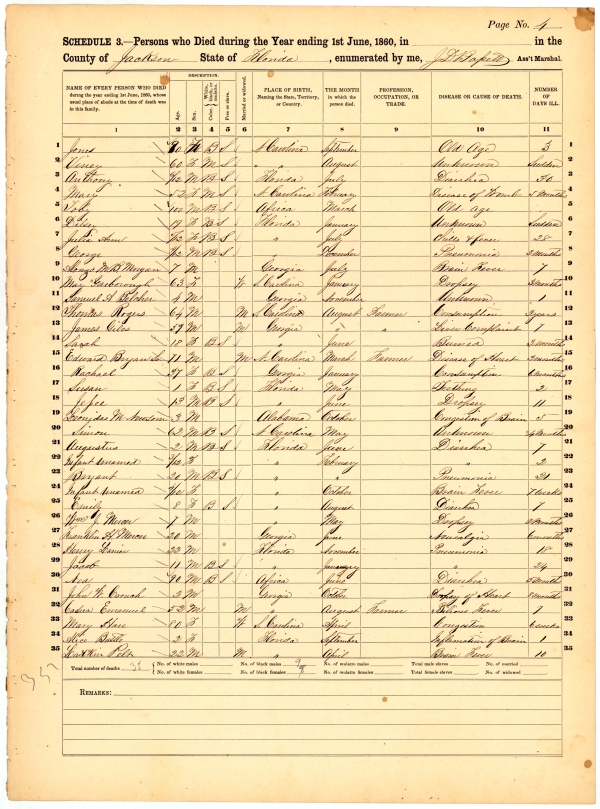 Page No. 4
SCHEDULE 3.—Persons who Died during the Year ending 1st June, 1860, in in the
County of Jackson State of Florida, enumerated by me, Ass't Marshal.
NAME OF EVERY PERSON WHO DIED during the year ending 1st June, 1860, whose usual place of abode at the time of death was in this family.
DESCRIPTION.
Age.
Sex.
Color White, black, or mulatto.
Free or slave.
Married or widowed.
PLACE OF BIRTH, Naming the State, Territory, or Country.
THE MONTH in which the person died.
PROFESSION, OCCUPATION, OR TRADE.
DISEASE OR CAUSE OF DEATH.
NUMBER OF DAYS ILL.
1 2 3 4 5 6 7 8 9 10 11
1 Jones B S N Carolina September Old Age 3 1
2 Viney 60 F M S " August Unknown Sudden 2
3 Anthony M B S Florida July Diarrhea 30 3
4 Mary F M S N Carolina February Disease of Womb 5 Months 4
5 Toby 100 M B S Africa March Old Age 5
6 Delsy 17 F B S Florida January Unknown Sudden 6
7 Julia Ann F B S " July fever 28 7
8 George M B S " December Pneumonia Months 8
9 Morgan 7 M Georgia July Brain Fever 7 9
10 May 63 F W S Carolina January Dropsy Months 10
11 Samuel A Belcher 4 M Georgia November Unknown 1 11
12 Thomas Rogers 64 M M S Carolina August Farmer Consumption years 12
13 James Giles 59 M M Georgia " " Liver Complaint 7 13
14 Sarah 18 F B S " June Months 14
15 Edward Bryan M M N Carolina March Farmer Disease of Heart Months 15
16 Rachael 27 F B S Georgia January Consumption Months 16
17 Susan 1 F B S Florida May Teething 2 17
18 Jesse 13 M B S " June Dropsy 11 18
19 Leonidas M 3 M Alabama October Congestion of Brain 5 19
20 Simon 62 M B S N Carolina May Unknown Months 20
21 Augustus 2 M B S Florida June Diarrhea 7 21
22 Infant unnamed F " February " 2 22
23 Bryant 20 M B S " " Pneumonia 21 23
24 Infant unnamed M " October Brain Fever 7 weeks 24
25 Emily 8 F B S " August Diarrhea 7 25
26 Wm J. Mercer 7 M " May Dropsy Months 26
27 Franklin H Mercer 20 M Georgia June Neuralgia Months 27
28 Henry Lanier 22 M Florida November Pneumonia 18 28
29 Jacob 11 M B S " January " 24 29
30 90 M B S Africa June Diarrhea Months 30
31 John W. Crouch 2 M Georgia October Dropsy of Heart Months 31
32 Emanuel 52 M M " August Farmer Bilious Fever 7 32
33 Mary Hare 80 F W S Carolina April Congestion weeks 33
34 Alice Butler 2 F Florida September Inflamation of Brain 1 34
35 Pelt 22 M M " April Brain Fever 10 35
Total number of deaths 35
No. of white males No. of black males 9 No. of mulatto males Total male slaves No. of married
No. of white females No. of black females 8 No. of mulatto females Total female slaves No. of widowed
REMARKS: